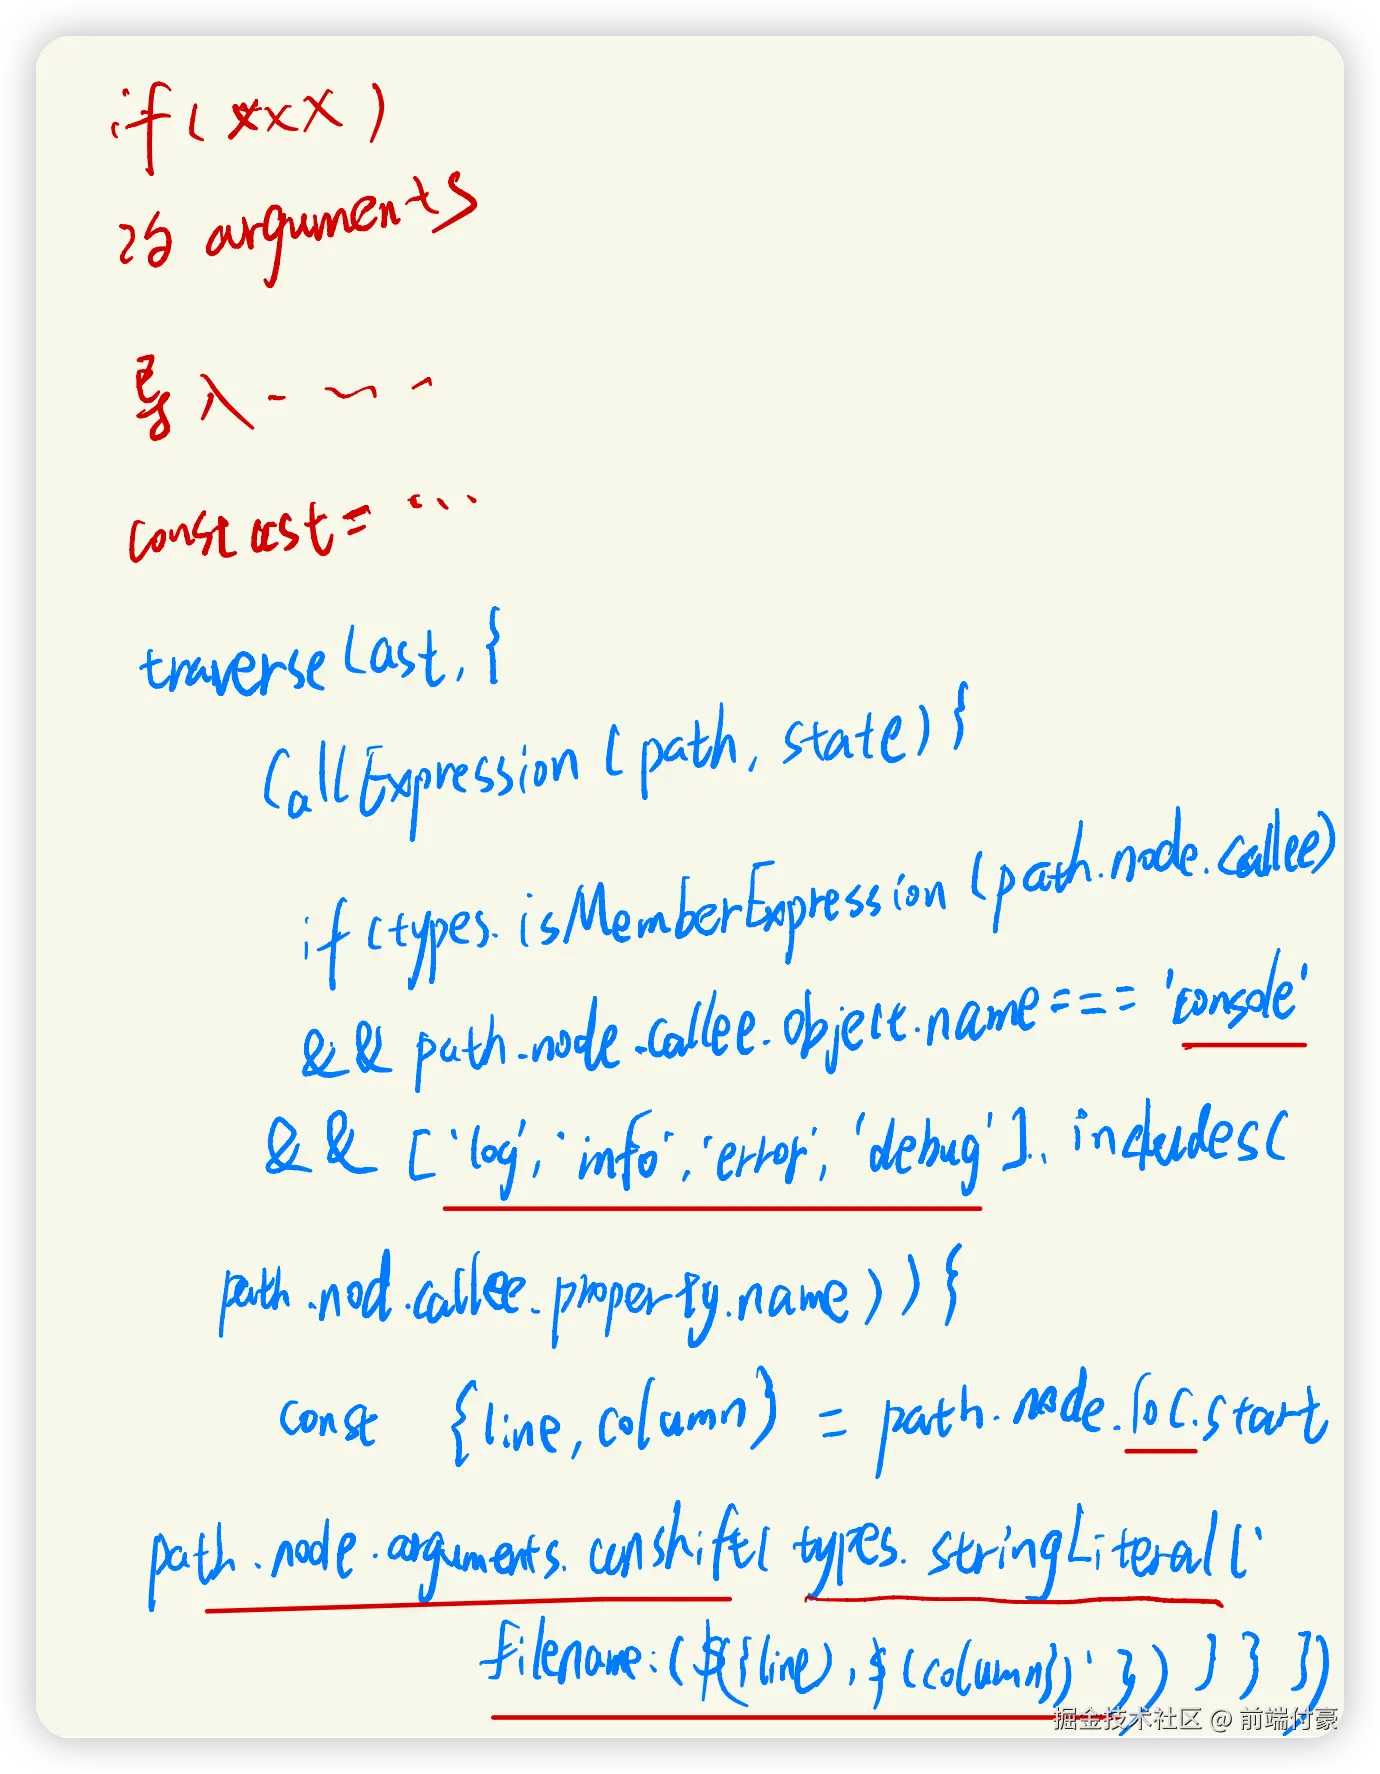 if(xxX)
改 arguments
导入....
const ast = ...
traverse(ast, {
CallExpression(path, state) {
if(types.isMemberExpression(path.node.callee)
&& path.node.callee.object.name === 'console'
&& ['log', 'info', 'error', 'debug'].includes(
path.nod.callee.property.name)) {
const {line, column} = path.node.loc.start
path.node.arguments.unshift(types.stringLiteral(`
filename:(${line},$(column})`})}}})
掘金技术社区 @ 前端付豪